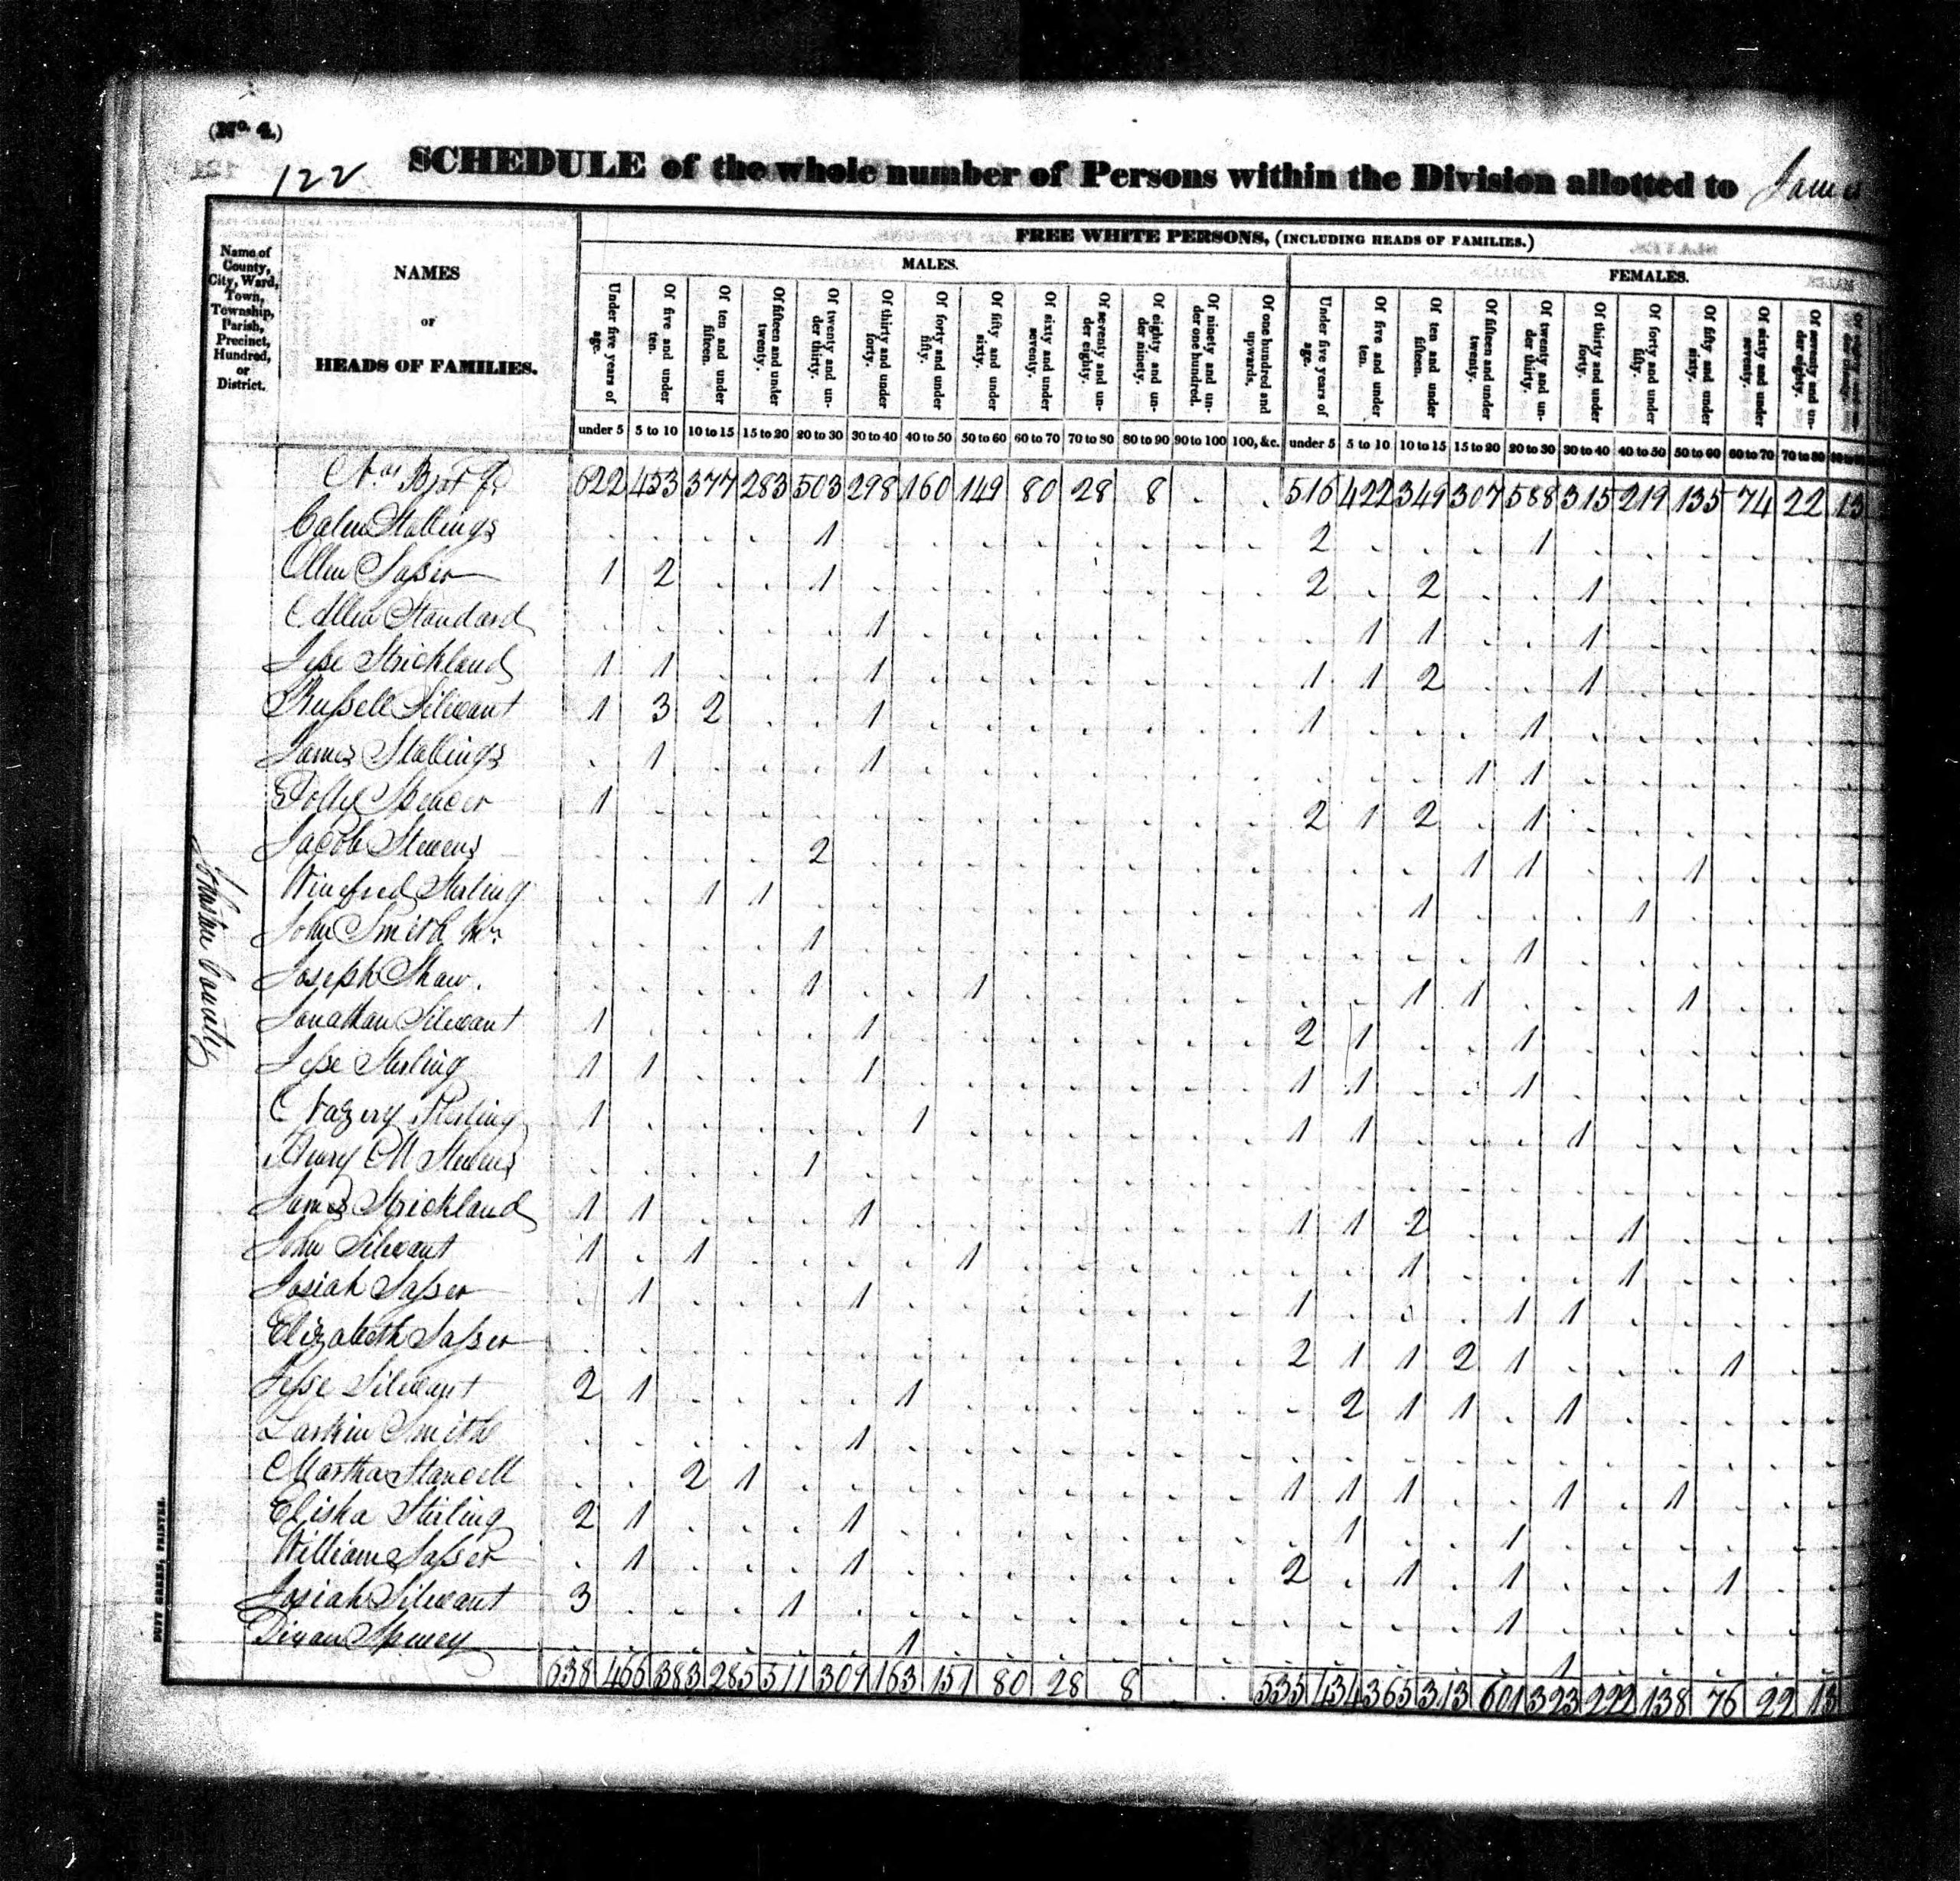 (No. 4.)
122
SCHEDULE of the whole number of Persons within the Division allotted to James
Name of County, City, Ward, Town, Township, Parish, Precinct, Hundred, or District.
NAMES
OF
HEADS OF FAMILIES.
FREE WHITE PERSONS, (INCLUDING HEADS OF FAMILIES.)
MALES.
FEMALES.
Under five years of age.
Of five and under ten.
Of ten and under fifteen.
Of fifteen and under twenty.
Of twenty and under thirty.
Of thirty and under forty.
Of forty and under fifty.
Of fifty and under sixty.
Of sixty and under seventy.
Of seventy and under eighty.
Of eighty and under ninety.
Of ninety and under one hundred.
Of one hundred and upwards.
Under five years of age.
Of five and under ten.
Of ten and under fifteen.
Of fifteen and under twenty.
Of twenty and under thirty.
Of thirty and under forty.
Of forty and under fifty.
Of fifty and under sixty.
Of sixty and under seventy.
Of seventy and under eighty.
under 5 5 to 10 10 to 15 15 to 20 20 to 30 30 to 40 40 to 50 50 to 60 60 to 70 70 to 80 80 to 90 90 to 100 100, &c. under 5 5 to 10 10 to 15 15 to 20 20 to 30 30 to 40 40 to 50 50 to 60 60 to 70 70 to 80
622 453 377 283 503 298 160 149 80 28 8 . . 516 422 349 307 588 315 219 135 74 22 13
Calen Stallings 1 2 1
Allen Sasser 1 2 1 2 2 1
Allen Standard 1 1 1 1
Jesse Strickland 1 1 1 1 1 2 1
Russell Silivant 1 3 2 1 1 1
James Stallings 1 1 1 1
Polly Spencer 1 2 1 2 1
Jacob Stevens 2 1 1 1
Winefred Sterling 1 1 1 1
John Smith 1 1
Joseph Shaw. 1 1 1 1 1
Jonathan Silivant 1 1 2 1 1
Jesse Sterling 1 1 1 1 1 1
Sterling 1 1 1 1 1
Henry M Stevens 1
James Strickland 1 1 1 1 1 2 1
John Silivant 1 1 1 1 1
Josiah Sasser 1 1 1 1 1
Elizabeth Sasser 2 1 1 2 1 1
Jesse Silivant 2 1 1 2 1 1 1
Larkin Smith 1
Martha Stancell 2 1 1 1 1 1 1
Elisha Sterling 2 1 1 1 1
William Sasser 1 1 2 1 1 1
Josiah Silivant 3 1 1
Spivey 1 1
638 466 383 285 511 309 163 151 80 28 8 . . 535 434 365 313 601 323 222 138 76 22 13
Johnston County
DUFF GREEN, PRINTER.